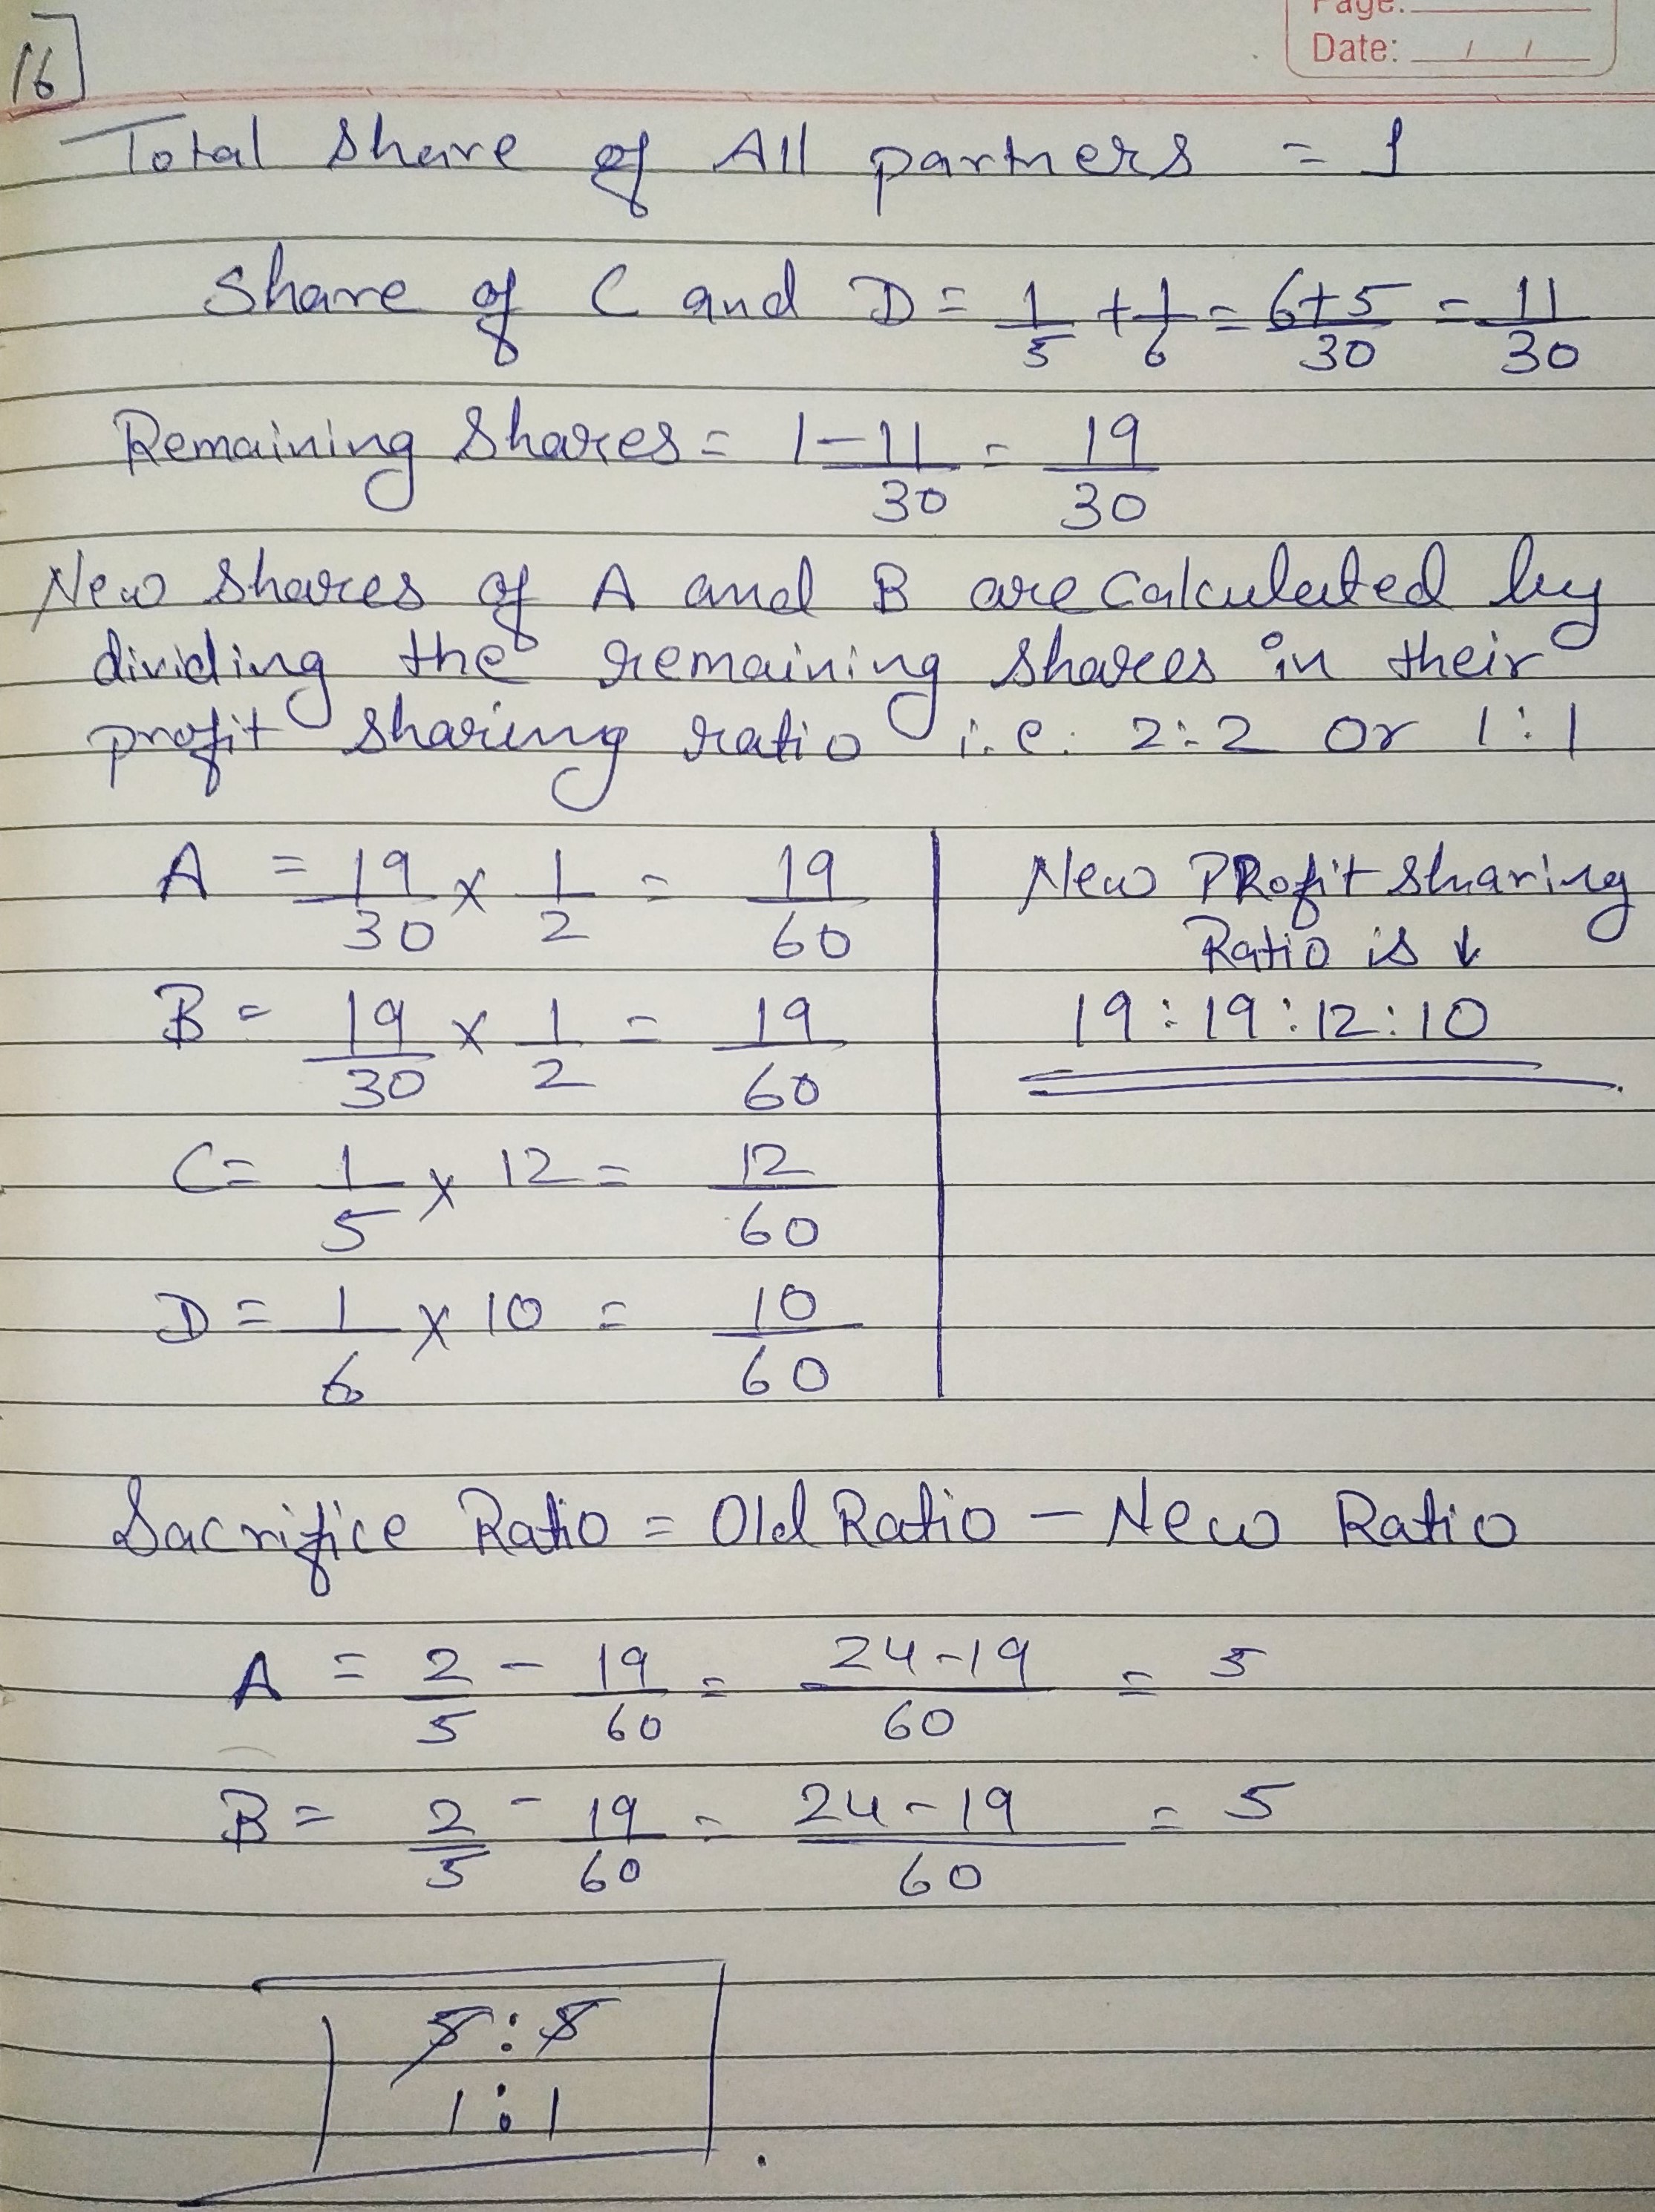 Page:
Date: / /
16]
Total Share of All partners = 1
Share of C and D = 1/5 + 1/6 = 6+5/30 = 11/30
Remaining Shares = 1 - 11/30 = 19/30
New Shares of A and B are Calculated by
dividing the remaining Shares in their
profit sharing ratio i.e. 2:2 Or 1:1
A = 19/30 × 1/2 = 19/60
New PRofit Sharing
Ratio is ↓
B = 19/30 × 1/2 = 19/60
19:19:12:10
C = 1/5 × 12 = 12/60
D = 1/6 × 10 = 10/60
Sacrifice Ratio = Old Ratio - New Ratio
A = 2/5 - 19/60 = 24-19/60 = 5
B = 2/5 - 19/60 = 24-19/60 = 5
5:5
1:1